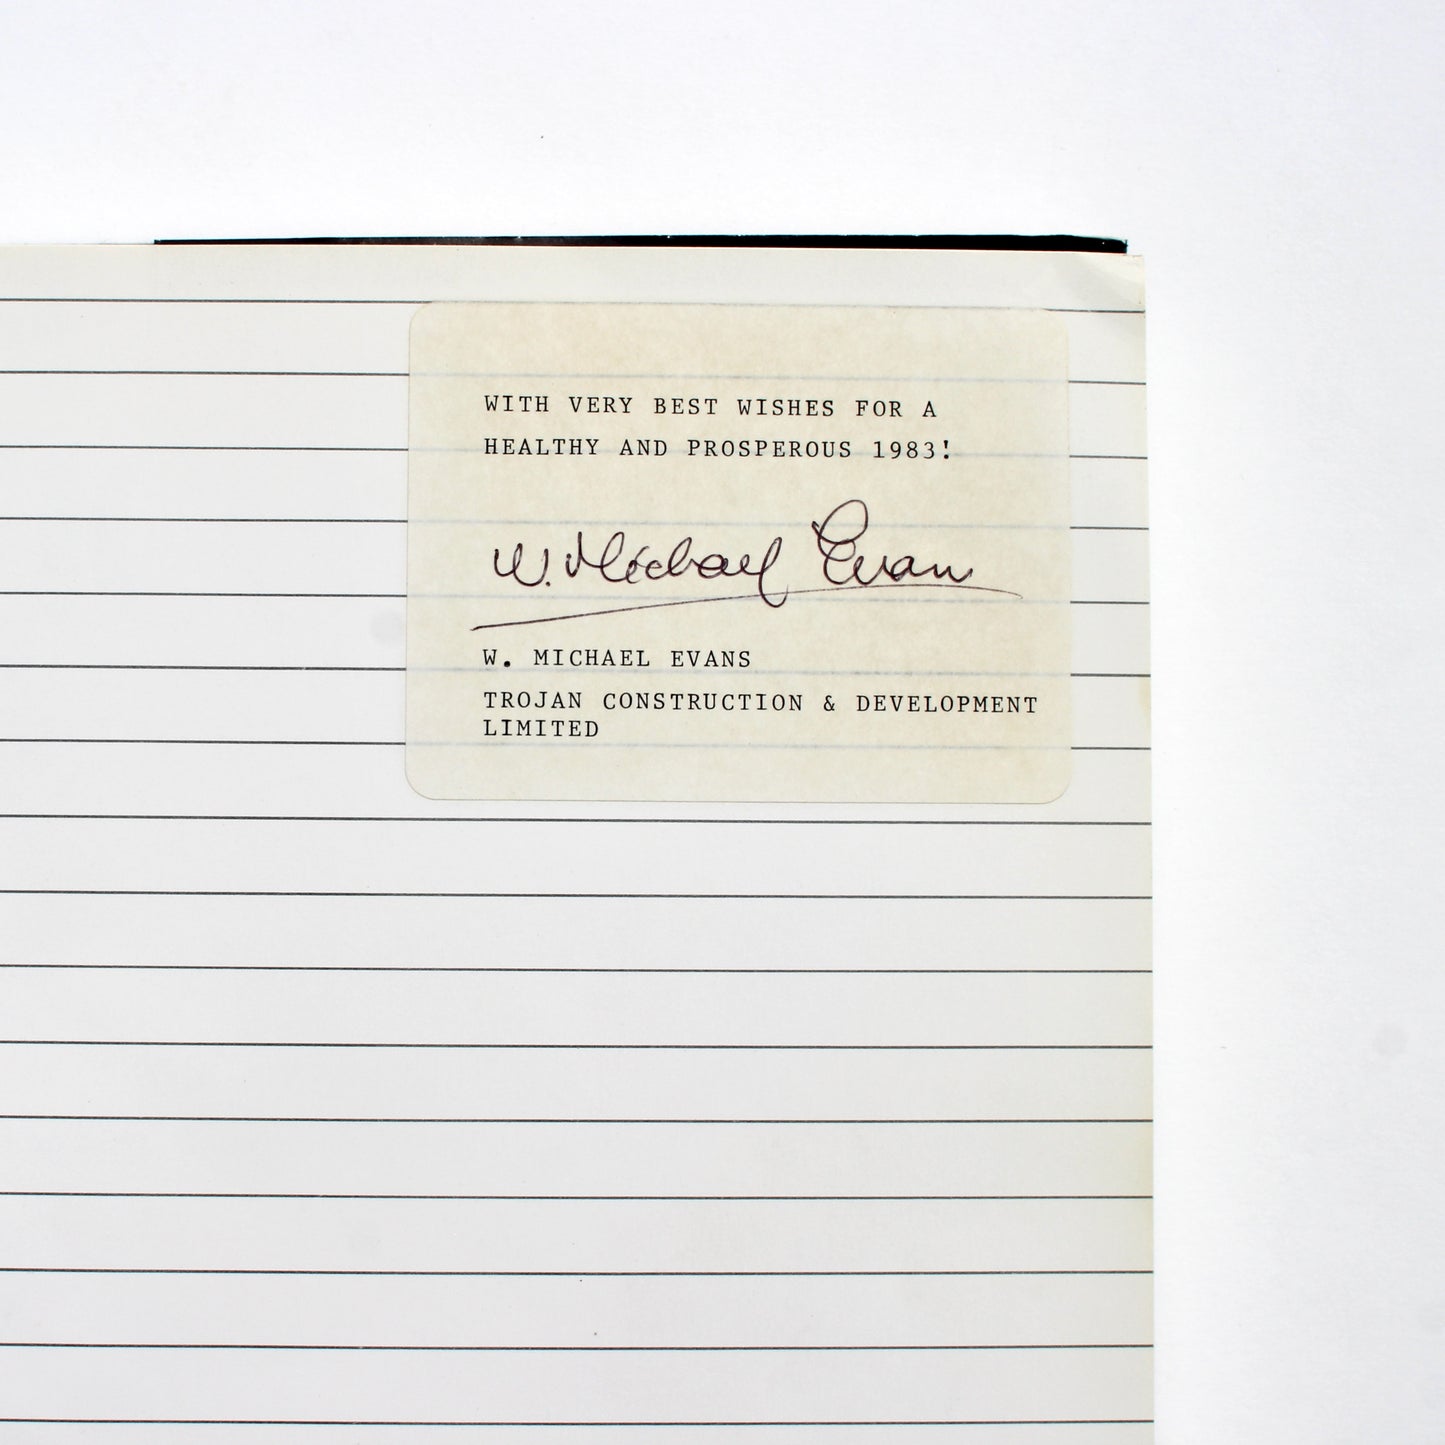 WITH VERY BEST WISHES FOR A
HEALTHY AND PROSPEROUS 1983!
W. Michael Evans
W. MICHAEL EVANS
TROJAN CONSTRUCTION & DEVELOPMENT
LIMITED